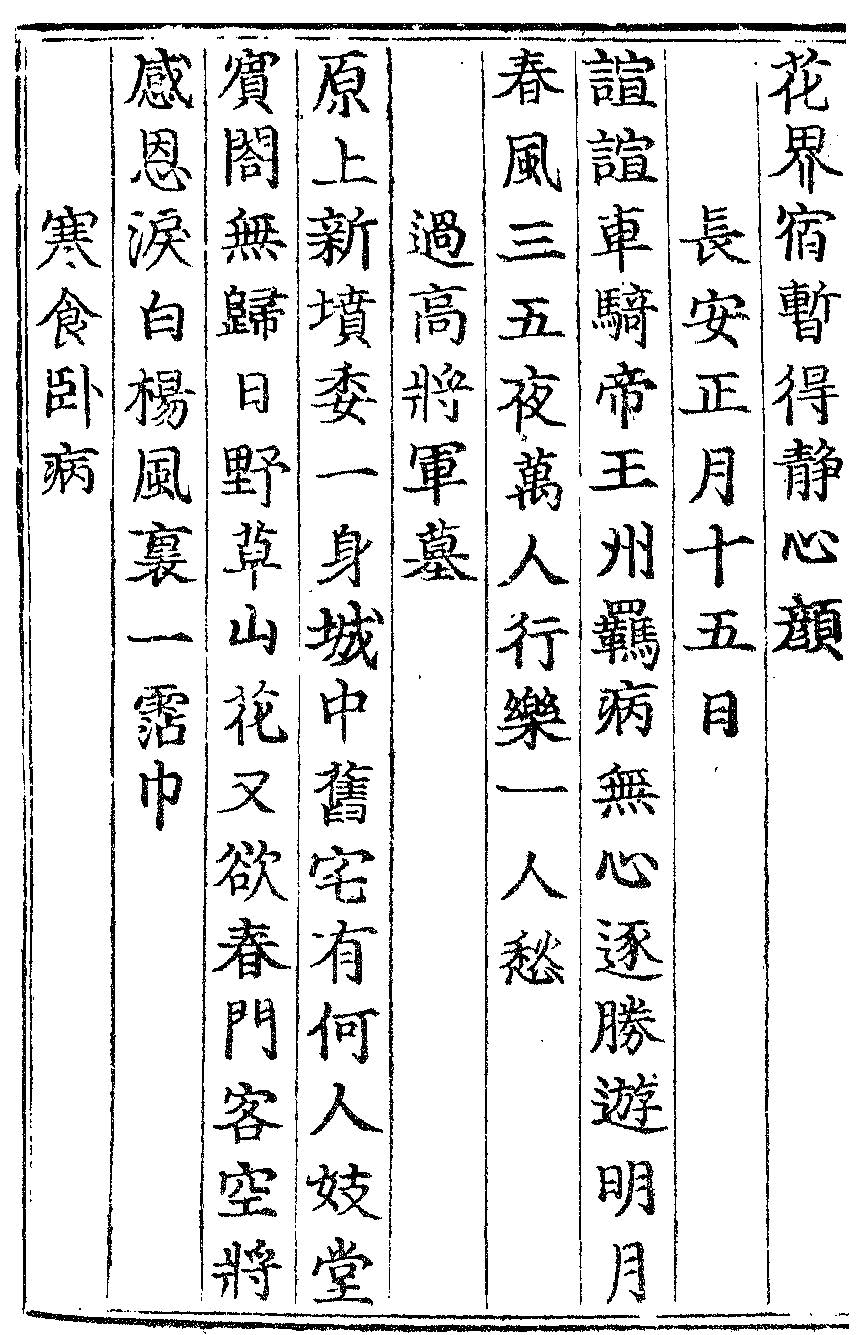 花界宿暫得静心顔
長安正月十五日
諠諠車騎帝王州羈病無心逐勝遊明月
春風三五夜萬人行樂一人愁
過高將軍墓
原上新墳委一身城中舊宅有何人妓堂
賓閤無歸日野草山花又欲春門客空將
感恩淚白楊風裏一霑巾
寒食卧病